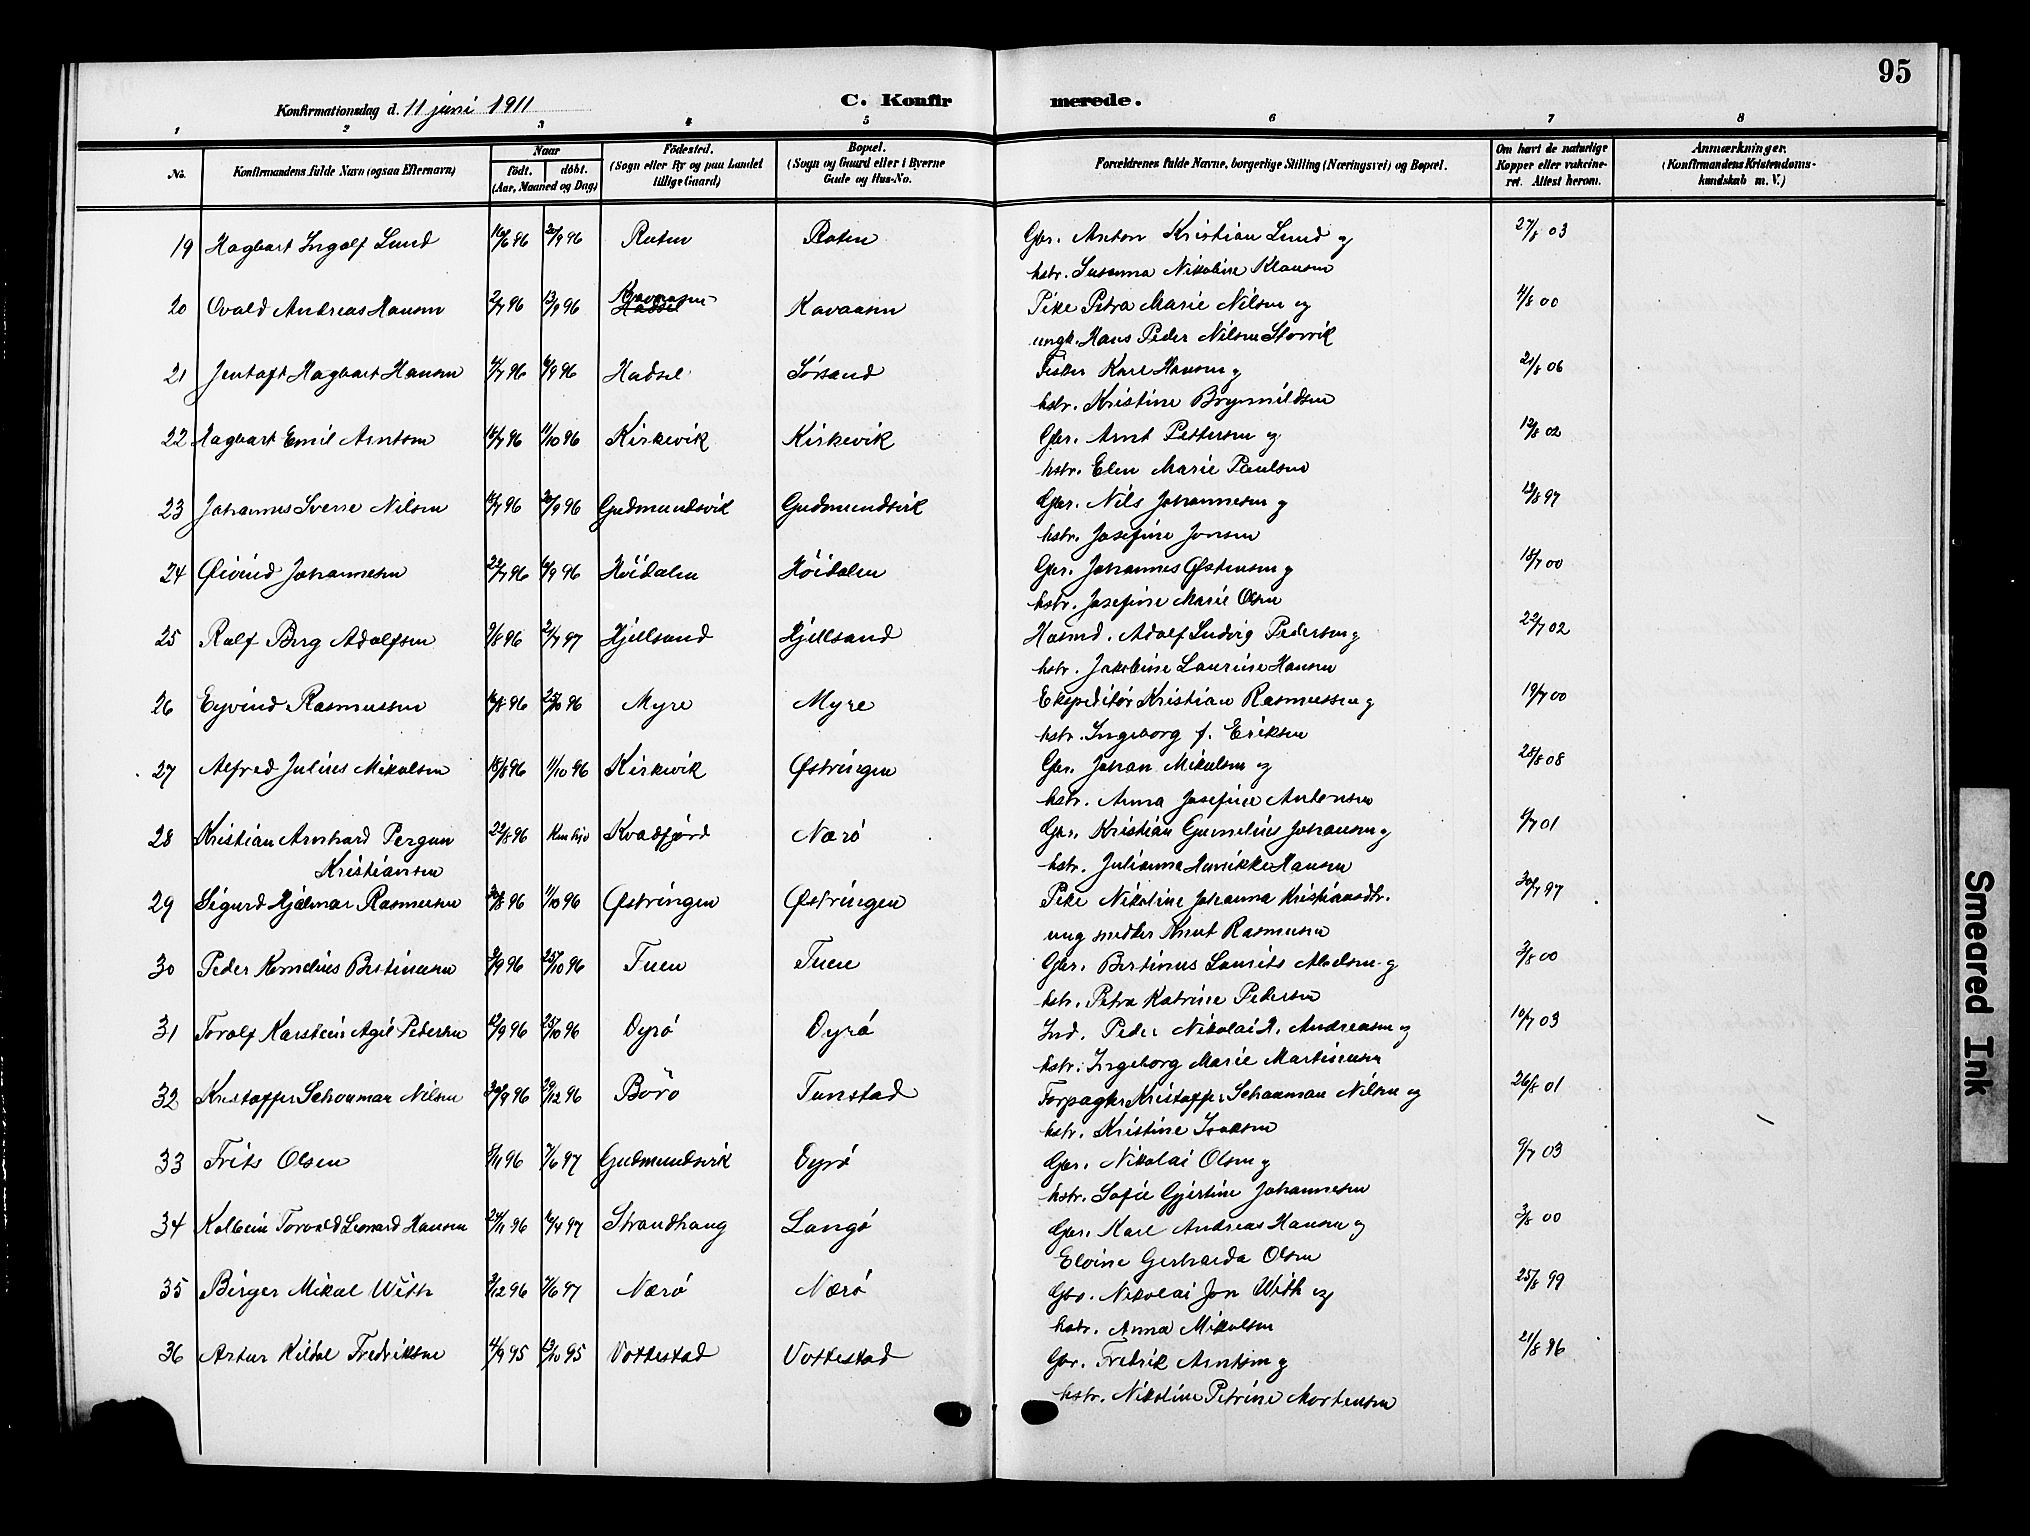 95
Konfirmationsdag d. 11 juni 1911
C. Konfirmerede.
1 2 3 4 5 6 7 8
No. Konfirmandens fulde Navn (ogsaa Efternavn) Naar födt. döbt. (Aar, Maaned og Dag) Födested. (Sogn eller By og paa Landet tillige Gaard) Bopæl. (Sogn og Gaard eller i Byerne Gade og Hus-No. Forældrenes fulde Navne, borgerlige Stilling (Næringsvei) og Bopæl. Om havt de naturlige Kopper eller vakcineret. Attest herom. Anmærkninger. (Konfirmandens Kristendomskundskab m. V.)
19 Hagbart Ingolf Lund 16/6 96 20/9 96 Roten Roten Gbr. Anton Kristian Lund og 27/8 03
hstr. Susanna Nikoline Klausen
20 Ovald Andreas Hansen 2/7 96 13/9 96 Kavaasen Hadsel Kavaasen Pike Petra Marie Nilsen og 4/8 00
ungk. Hans Peder Nilsen Storvik
21 Jentoft Hagbart Hansen 4/7 96 6/9 96 Hadsel Sørsand Fisker Karl Hansen og 21/8 06
hstr. Kristine Brynnildsen
22 Hagbart Emil Arntsen 16/7 96 11/10 96 Kirkevik Kirkevik Gbr. Arnt Pettersen og 12/8 02
hstr. Elen Marie Paulsen
23 Johannes Sverre Nilsen 18/7 96 20/9 96 Gudmundsvik Gudmundsvik Gbr. Nils Johannesen og 12/8 97
hstr. Josefine Jonsen
24 Øivind Johannesen 22/7 96 6/9 96 Höidalen Höidalen Gbr. Johannes Østensen og 18/7 00
hstr. Josefine Marie Olsen
25 Ralf Berg Adolfsen 9/8 96 21/7 97 Hjellsand Hjellsand Husmd. Adolf Ludvig Pedersen og 22/7 02
hstr. Jakobine Laurine Hansen
26 Eyvind Rasmussen 16/8 96 25/10 96 Myre Myre Ekspeditör Kristian Rasmussen og 19/7 00
hstr. Ingeborg f. Eriksen
27 Alfred Julius Mikalsen 18/8 96 11/10 96 Kirkevik Østringen Gbr. Johan Mikalsen og 28/8 08
hstr. Anna Josefine Antonsen
28 Kristian Arnhard Pergum 22/8 96 Kvædfjord Nærö Gbr. Kristian Johansen og 9/7 01
Kristiansen hstr. Julianna Henrikke Hansen
29 Sigurd Hjalmar Rasmussen 30/8 96 11/10 96 Østringen Østringen Pike Nikoline Johanna Kristiansdtr. 30/7 97
ung snedker Knut Rasmussen
30 Peder Kornelius Bertinusen 3/9 96 25/10 96 Tuen Tuen Gbr. Bertinus Laurits Abelsen og 3/8 00
hstr. Petra Katrine Pedersen
31 Toralf Karstein Agil Pedersen 12/9 96 25/10 96 Dyrö Dyrö Ind. Peder Nikolai A. Andreasen og 10/7 03
hstr. Ingeborg Marie Martinusen
32 Kristoffer Schouman Nilsen 30/9 96 29/12 96 Börö Tunstad Forpagter Kristoffer Schauman Nilsen og 26/8 01
hstr. Kristine Isaksen
33 Frits Olsen 8/11 96 7/6 97 Gudmundsvik Dyrö Gbr. Nikolai Olsen og 9/7 03
hstr. Sofie Gjertine Johannesen
34 Kolbein Torvald Leonard Hansen 24/11 96 16/4 97 Strandhaug Langö Gbr. Karl Andreas Hansen og 3/8 00
Elvine Gerharda Olsen
35 Birger Mikal With 3/12 96 7/6 97 Nærö Nærö Gbr. Nikolai Jon With og 25/8 99
hstr. Anna Mikalsen
36 Artur Kildal Fredriksen 4/9 95 13/10 95 Vottestad Vottestad Gbr. Fredrik Arntsen og 21/8 96
hstr. Nikoline Petrine Mortensen
Smeared Ink